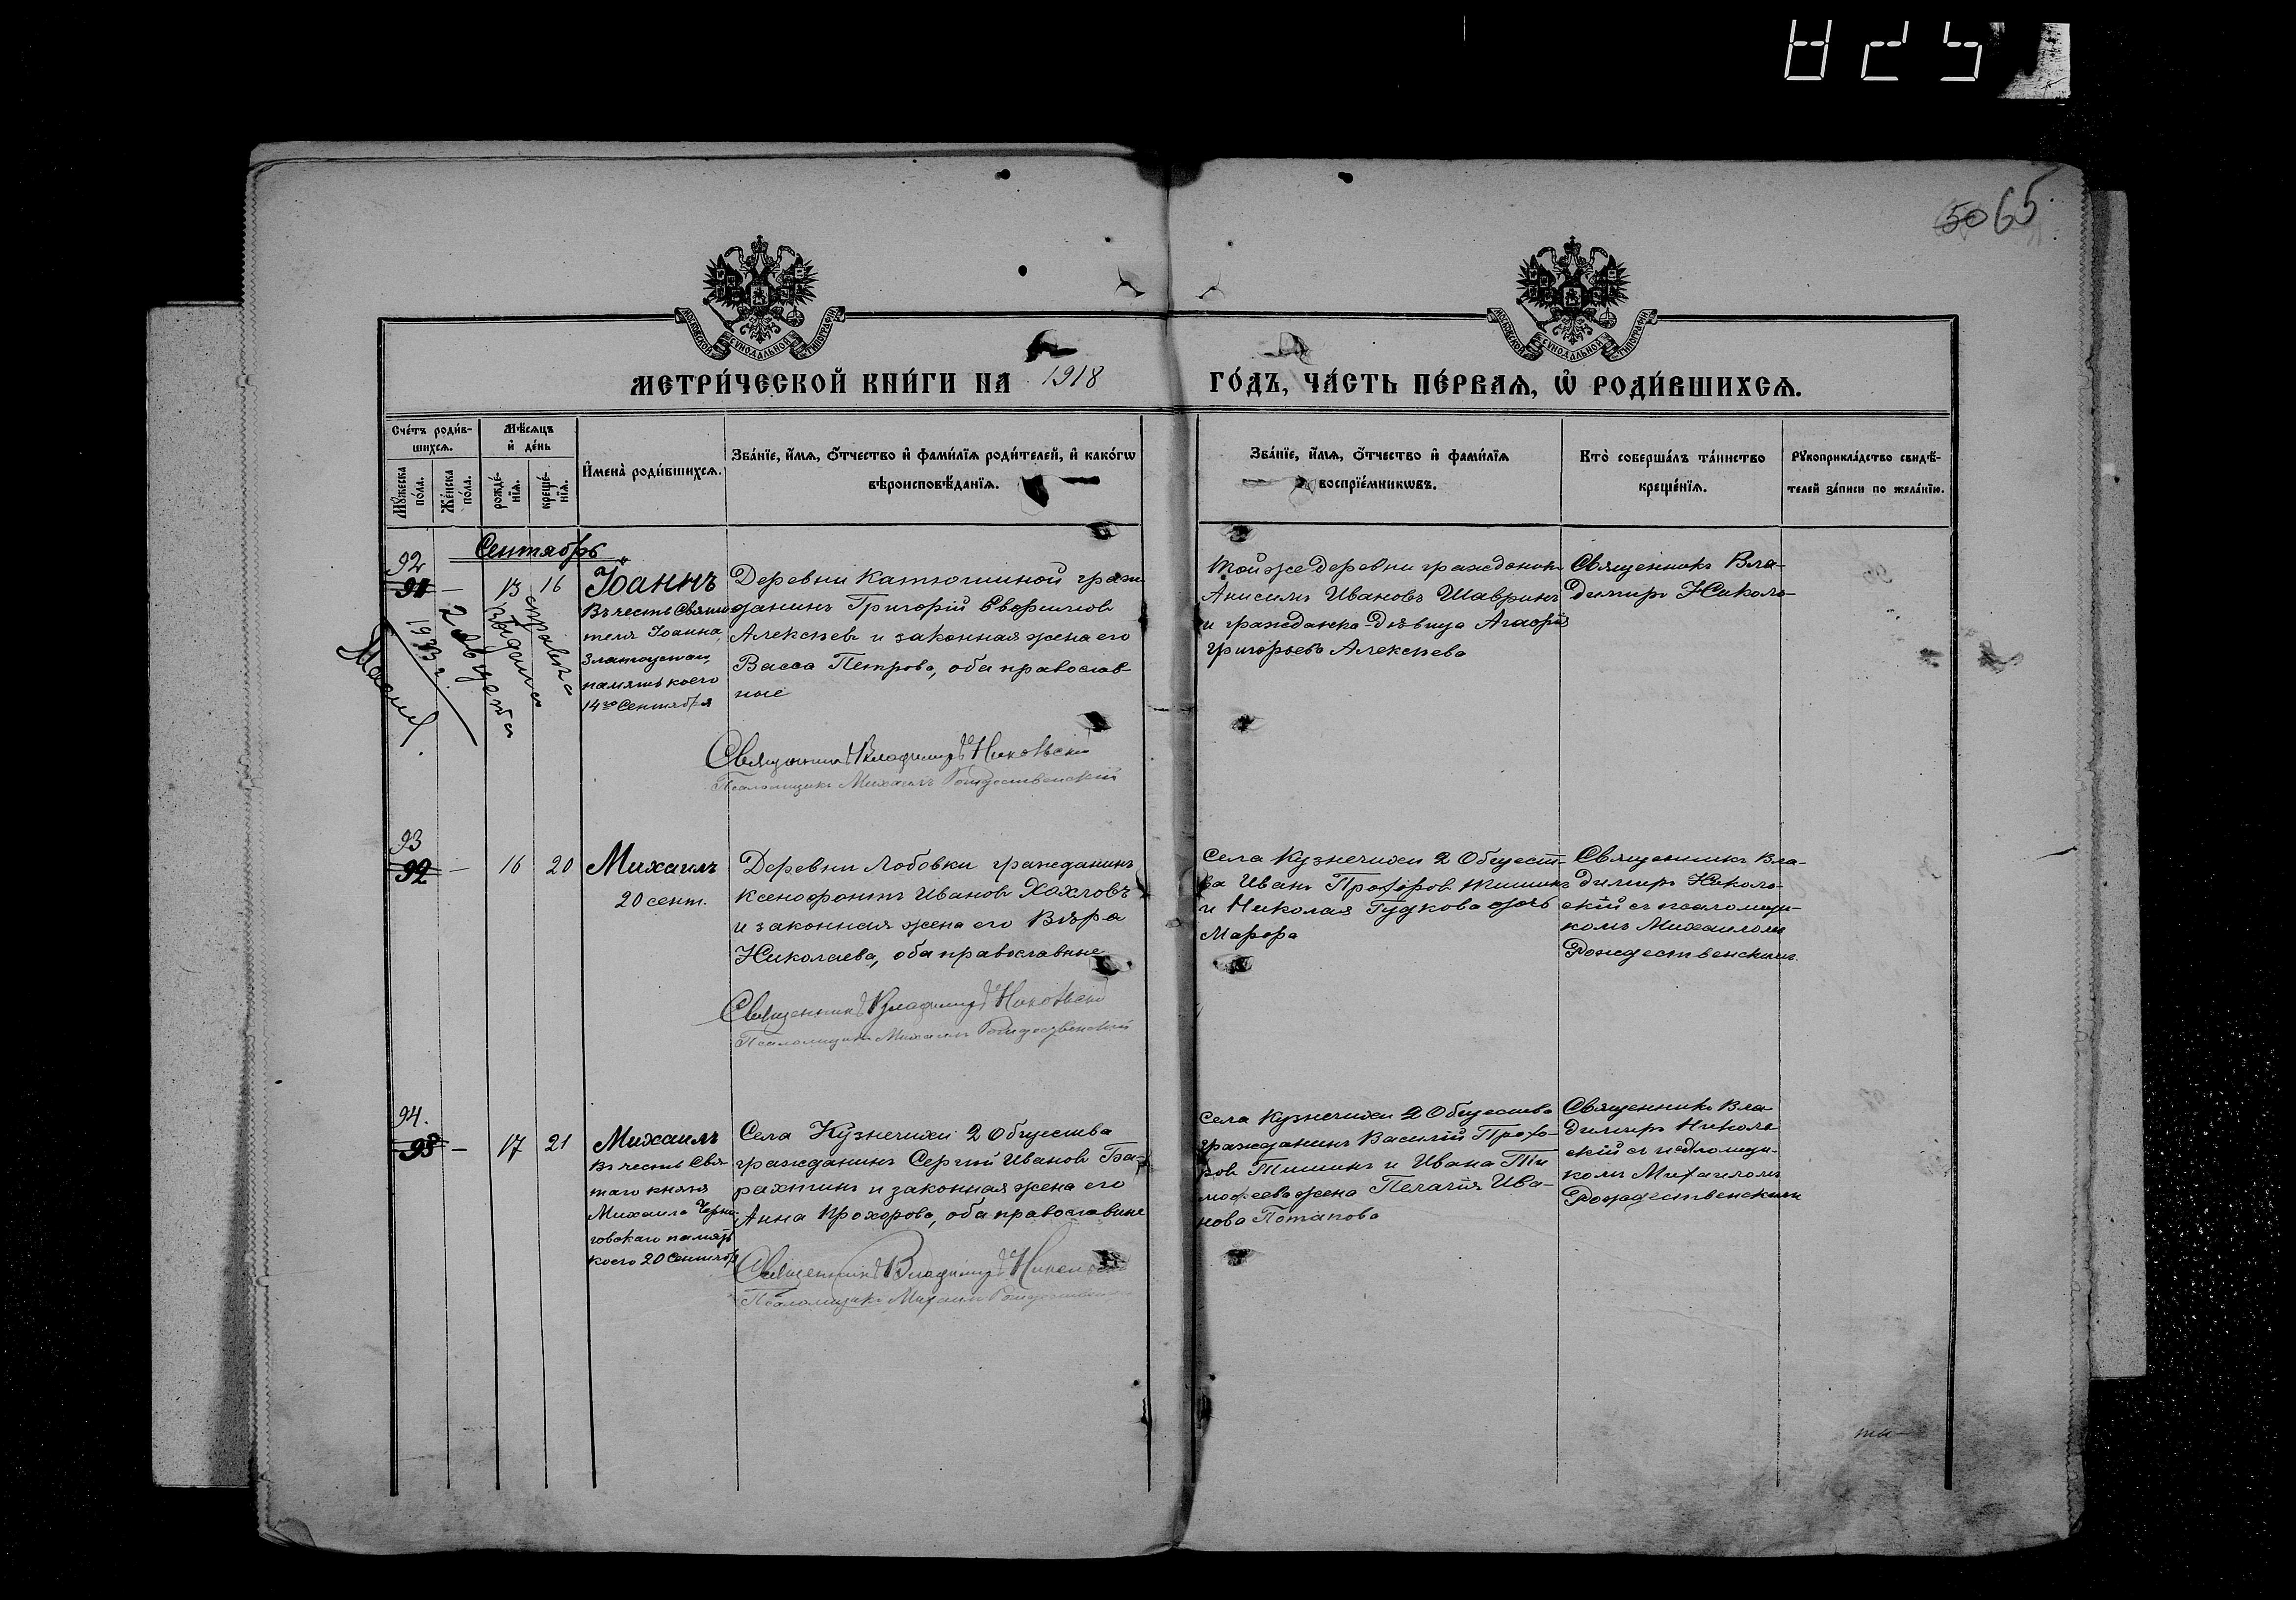 5065
МОСКОВСКОЙ СѴНОДАЛЬНОЙ ТИПОГРАФІИ
МОСКОВСКОЙ СѴНОДАЛЬНОЙ ТИПОГРАФІИ
МЕТРИ́ЧЕСКОЙ КНИ́ГИ НА 1918
ГО́ДЪ, ЧА́СТЬ ПЕ́РВАѦ, Ѡ҆ РОДИ́ВШИХСѦ.
Сче́тъ роди́в-
шихсѧ.
Мꙋ́жеска
по́ла.
Же́нска
по́ла.
Мѣ́сѧцъ
и҆ де́нь
рожде́-
нїѧ.
креще́-
нїѧ.
И҆мена̀ роди́вшихсѧ.
Зва́нїе, и҆́мѧ, ѻ҆́тчество и҆ фами́лїѧ роди́телей, и҆ како́гѡ
вѣроисповѣ́данїѧ.
Зва́нїе, и҆́мѧ, ѻ҆́тчество и҆ фами́лїѧ
воспрїе́мникѡвъ.
Кто̀ соверша́лъ та́инство
креще́нїѧ.
Рꙋкоприкла́дство свидѣ́-
телей за́писи по жела́нїю.
Сентябрь
92
91 — 13 16
Іоаннъ
Въ честь Святи
теля Іоанна
Златоустаго,
память коего
14го Сентября
справка
выдана
2 августа
1933 г.
Деревни Катюшиной граж
данинъ Григорій Евфимовъ
Алексѣевъ и законная жена его
Васса Петрова, оба православ-
ные
Священникъ Владиміръ Никольскій
Псаломщикъ Михаилъ Рождественскій
Той же деревни гражданинъ
Анисимъ Ивановъ Шавринъ
и гражданка-дѣвица Агафія
Григорьева Алексѣева
Священникъ Вла-
диміръ Николь-
93
92 — 16 20
Михаилъ
20 сент.
Деревни Лобовки гражданинъ
Ксенофонтъ Ивановъ Хохловъ
и законная жена его Вѣра
Николаева, оба православные
Священникъ Владиміръ Никольскій
Псаломщикъ Михаилъ Рождественскій
Села Кузнечихи 2 Общест-
ва Иванъ Прохоровъ Тишинъ
и Николая Гудкова дочь
Марфа
Священникъ Вла-
диміръ Николь-
скій съ псаломщи-
комъ Михаиломъ
Рождественскимъ
94.
93 — 17 21
Михаилъ
Въ честь Свя-
таго князя
Михаила Черни
говскаго память
коего 20 Сентября
Села Кузнечихи 2 Общества
гражданинъ Сергій Ивановъ Ба-
рахтинъ и законная жена его
Анна Прохорова, оба православные
Священникъ Владиміръ Никольскій
Псаломщикъ Михаилъ Рождественскій
Села Кузнечихи 2 Общества
гражданинъ Василій Прохо-
ровъ Тишинъ и Ивана Ти
мофеева жена Пелагія Ива-
нова Потапова
Священникъ Вла
диміръ Николь
скій съ псаломщи-
комъ Михаиломъ
Рождественскимъ